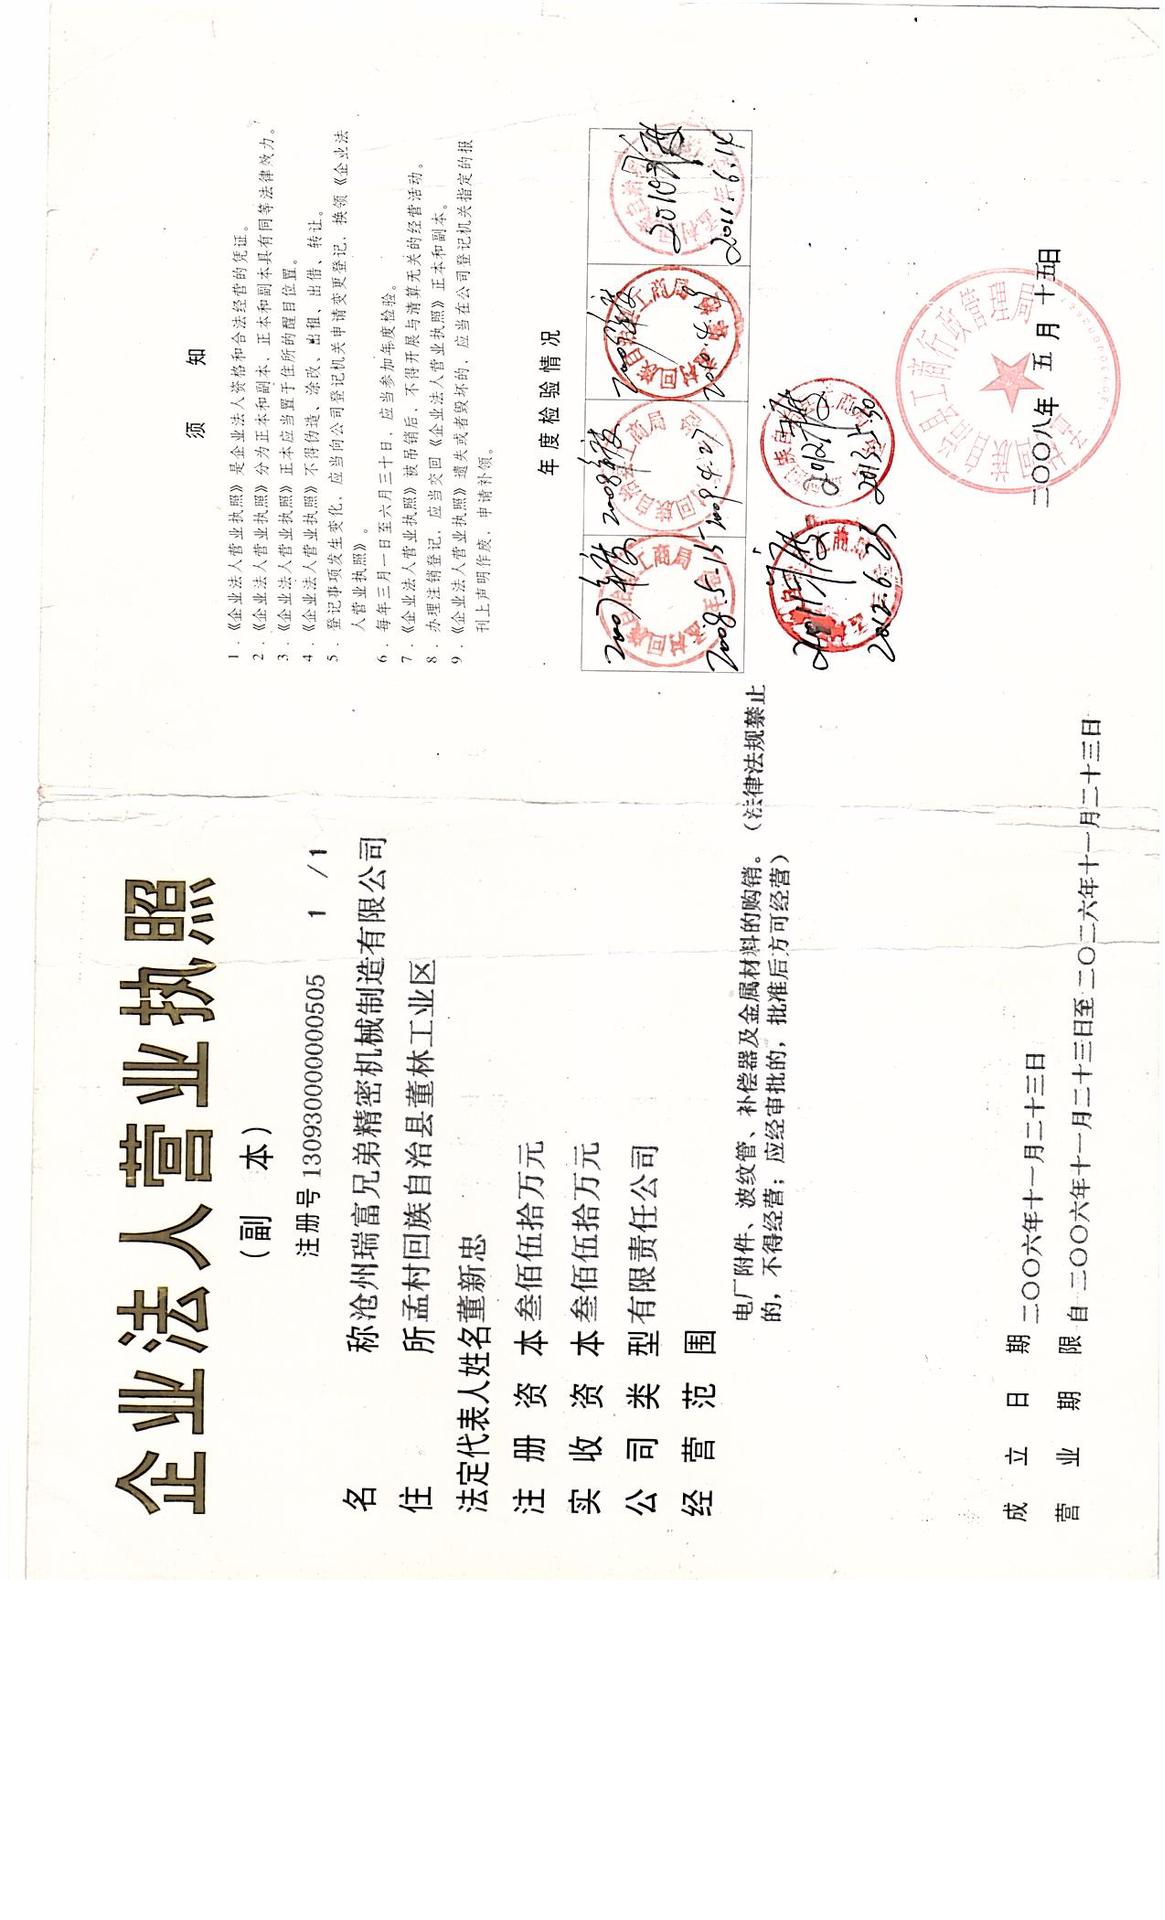 企业法人营业执照
（副 本）
注册号 130930000000505 1 /1
名 称 沧州瑞富兄弟精密机械制造有限公司
住 所 孟村回族自治县董林工业区
法定代表人姓名 董新忠
注 册 资 本 叁佰伍拾万元
实 收 资 本 叁佰伍拾万元
公 司 类 型 有限责任公司
经 营 范 围
电厂附件、波纹管、补偿器及金属材料的购销。（法律法规禁止
的，不得经营；应经审批的，批准后方可经营）
成 立 日 期 二〇〇六年十一月二十三日
营 业 期 限 自 二〇〇六年十一月二十三日至 二〇二六年十一月二十三日
须 知
1．《企业法人营业执照》是企业法人资格和合法经营的凭证。
2．《企业法人营业执照》分为正本和副本，正本和副本具有同等法律效力。
3．《企业法人营业执照》正本应当置于住所的醒目位置。
4．《企业法人营业执照》不得伪造、涂改、出租、出借、转让。
5．登记事项发生变化，应当向公司登记机关申请变更登记，换领《企业法
人营业执照》。
6．每年三月一日至六月三十日，应当参加年度检验。
7．《企业法人营业执照》被吊销后，不得开展与清算无关的经营活动。
8．办理注销登记，应当交回《企业法人营业执照》正本和副本。
9．《企业法人营业执照》遗失或者毁坏的，应当在公司登记机关指定的报
刊上声明作废，申请补领。
年度检验情况
2008.5.15
2010
2011.6.14
2011
2012
2013.5.30
工商行政管理局
二〇〇八年 五 月 十五日